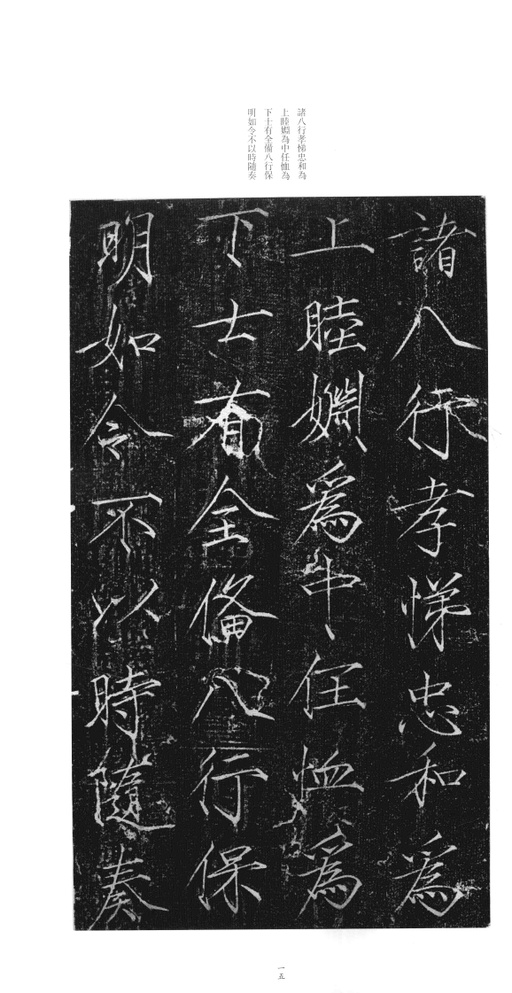 諸八行孝悌忠和為
上睦婣為中任恤為
下士有全備八行保
明如令不以時隨奏
諸八行孝悌忠和爲
上睦婣爲中任恤爲
下士有全備八行保
明如令不以時隨奏
一五